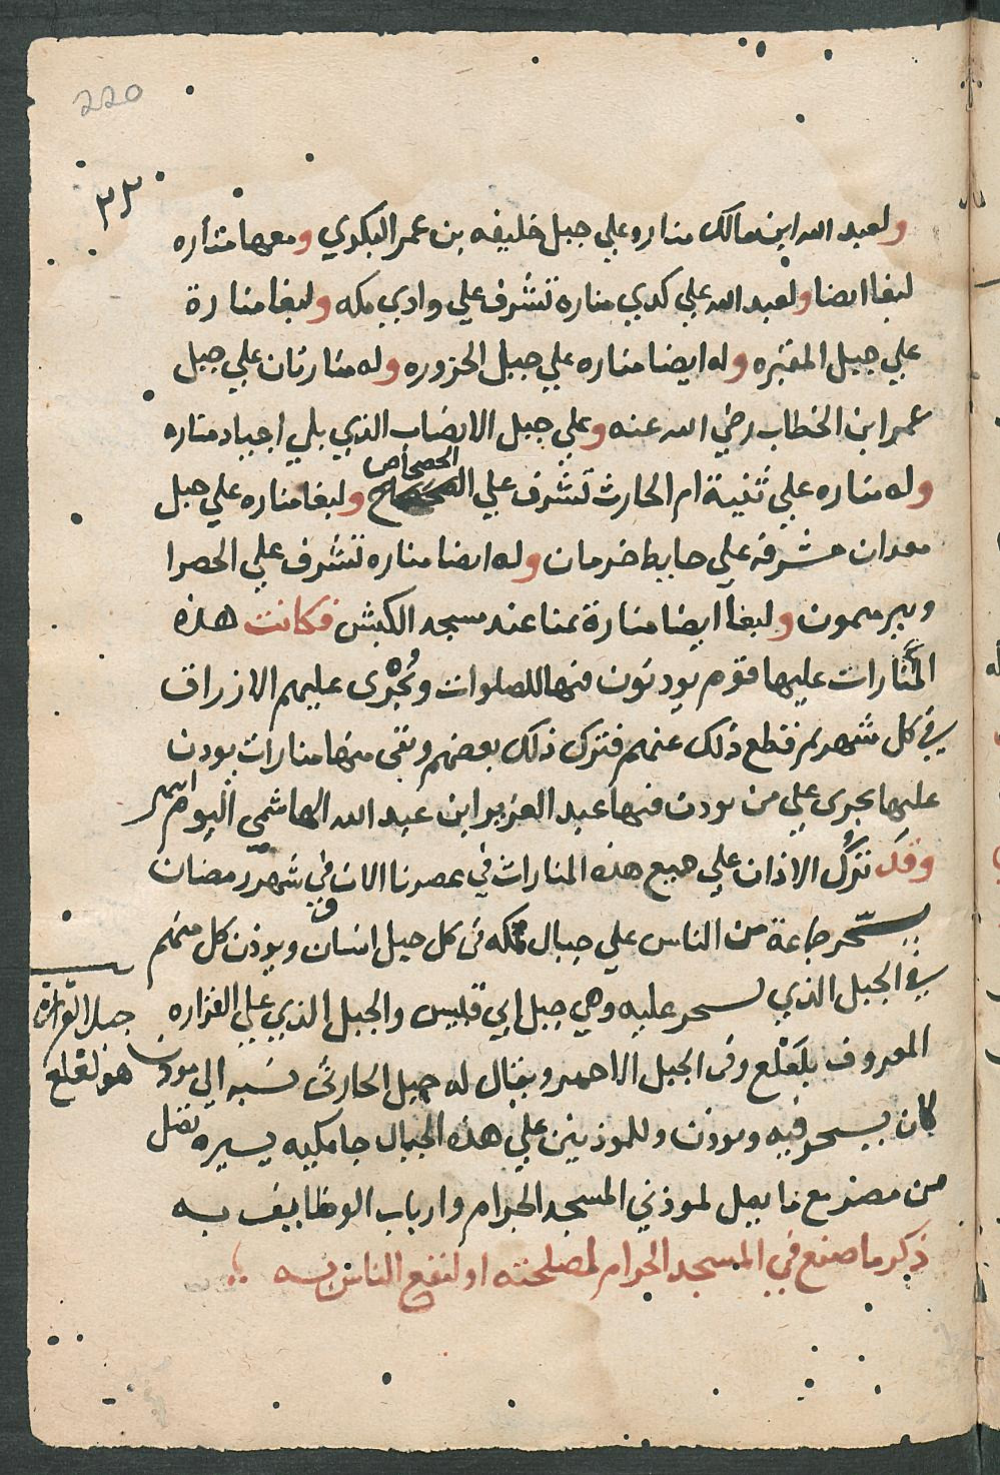 220
٣٣
ولعبد الله ابن مالك مناره علي جبل خليفه بن عمر البكري ومعها مناره
لبغا ايضا ولعبد الله علي كدي مناره تشرف علي وادي مكه ولبغا منارة
علي جبل المقبره وله ايضا مناره علي جبل الحزوره وله منارتان علي جبل
عمر ابن الخطاب رضي الله عنه وعلي جبل الانصاب الذي يلي اجياد مناره
وله مناره علي ثنية ام الحارث تشرف علي الحصحاص ولبغا مناره علي جبل
معدان مشرفه علي حايط خرمان وله ايضا مناره تشرف علي الخضرا
وبير ميمون ولبغا ايضا منارة بمنا عند مسجد الكبش فكانت هذه
المنارات عليها قوم يوذنون فيها للصلوات وتجرى عليهم الارزاق
في كل شهر ثم قطع ذلك عنهم فترك ذلك بعضهم وبقى منها منارات يوذن
عليها يجرى علي من يوذن فيها عبد العزيز ابن عبد الله الهاشمي اليوم انتهى
وقد ترك الاذان علي جميع هذه المنارات في عصرنا الان وفي شهر رمضان
يسحر جماعة من الناس علي جبال مكه في كل جبل انسان ويوذن كل منهم
في الجبل الذي يسحر عليه وهي جبل ابي قبيس والجبل الذي علي القراره
المعروف بلعلع وفي الجبل الاحمر ويقال له جبل الحارثي نسبه الي موذن
كان يسحر فيه ويوذن وللموذنين علي هذه الجبال جامكيه يسيره تصل
من مصر مع ما يصل لموذني المسجد الحرام وارباب الوظايف به
ذكر ما صنع في المسجد الحرام لمصلحته او لنفع الناس به
جبل القرارة
هو لعلع